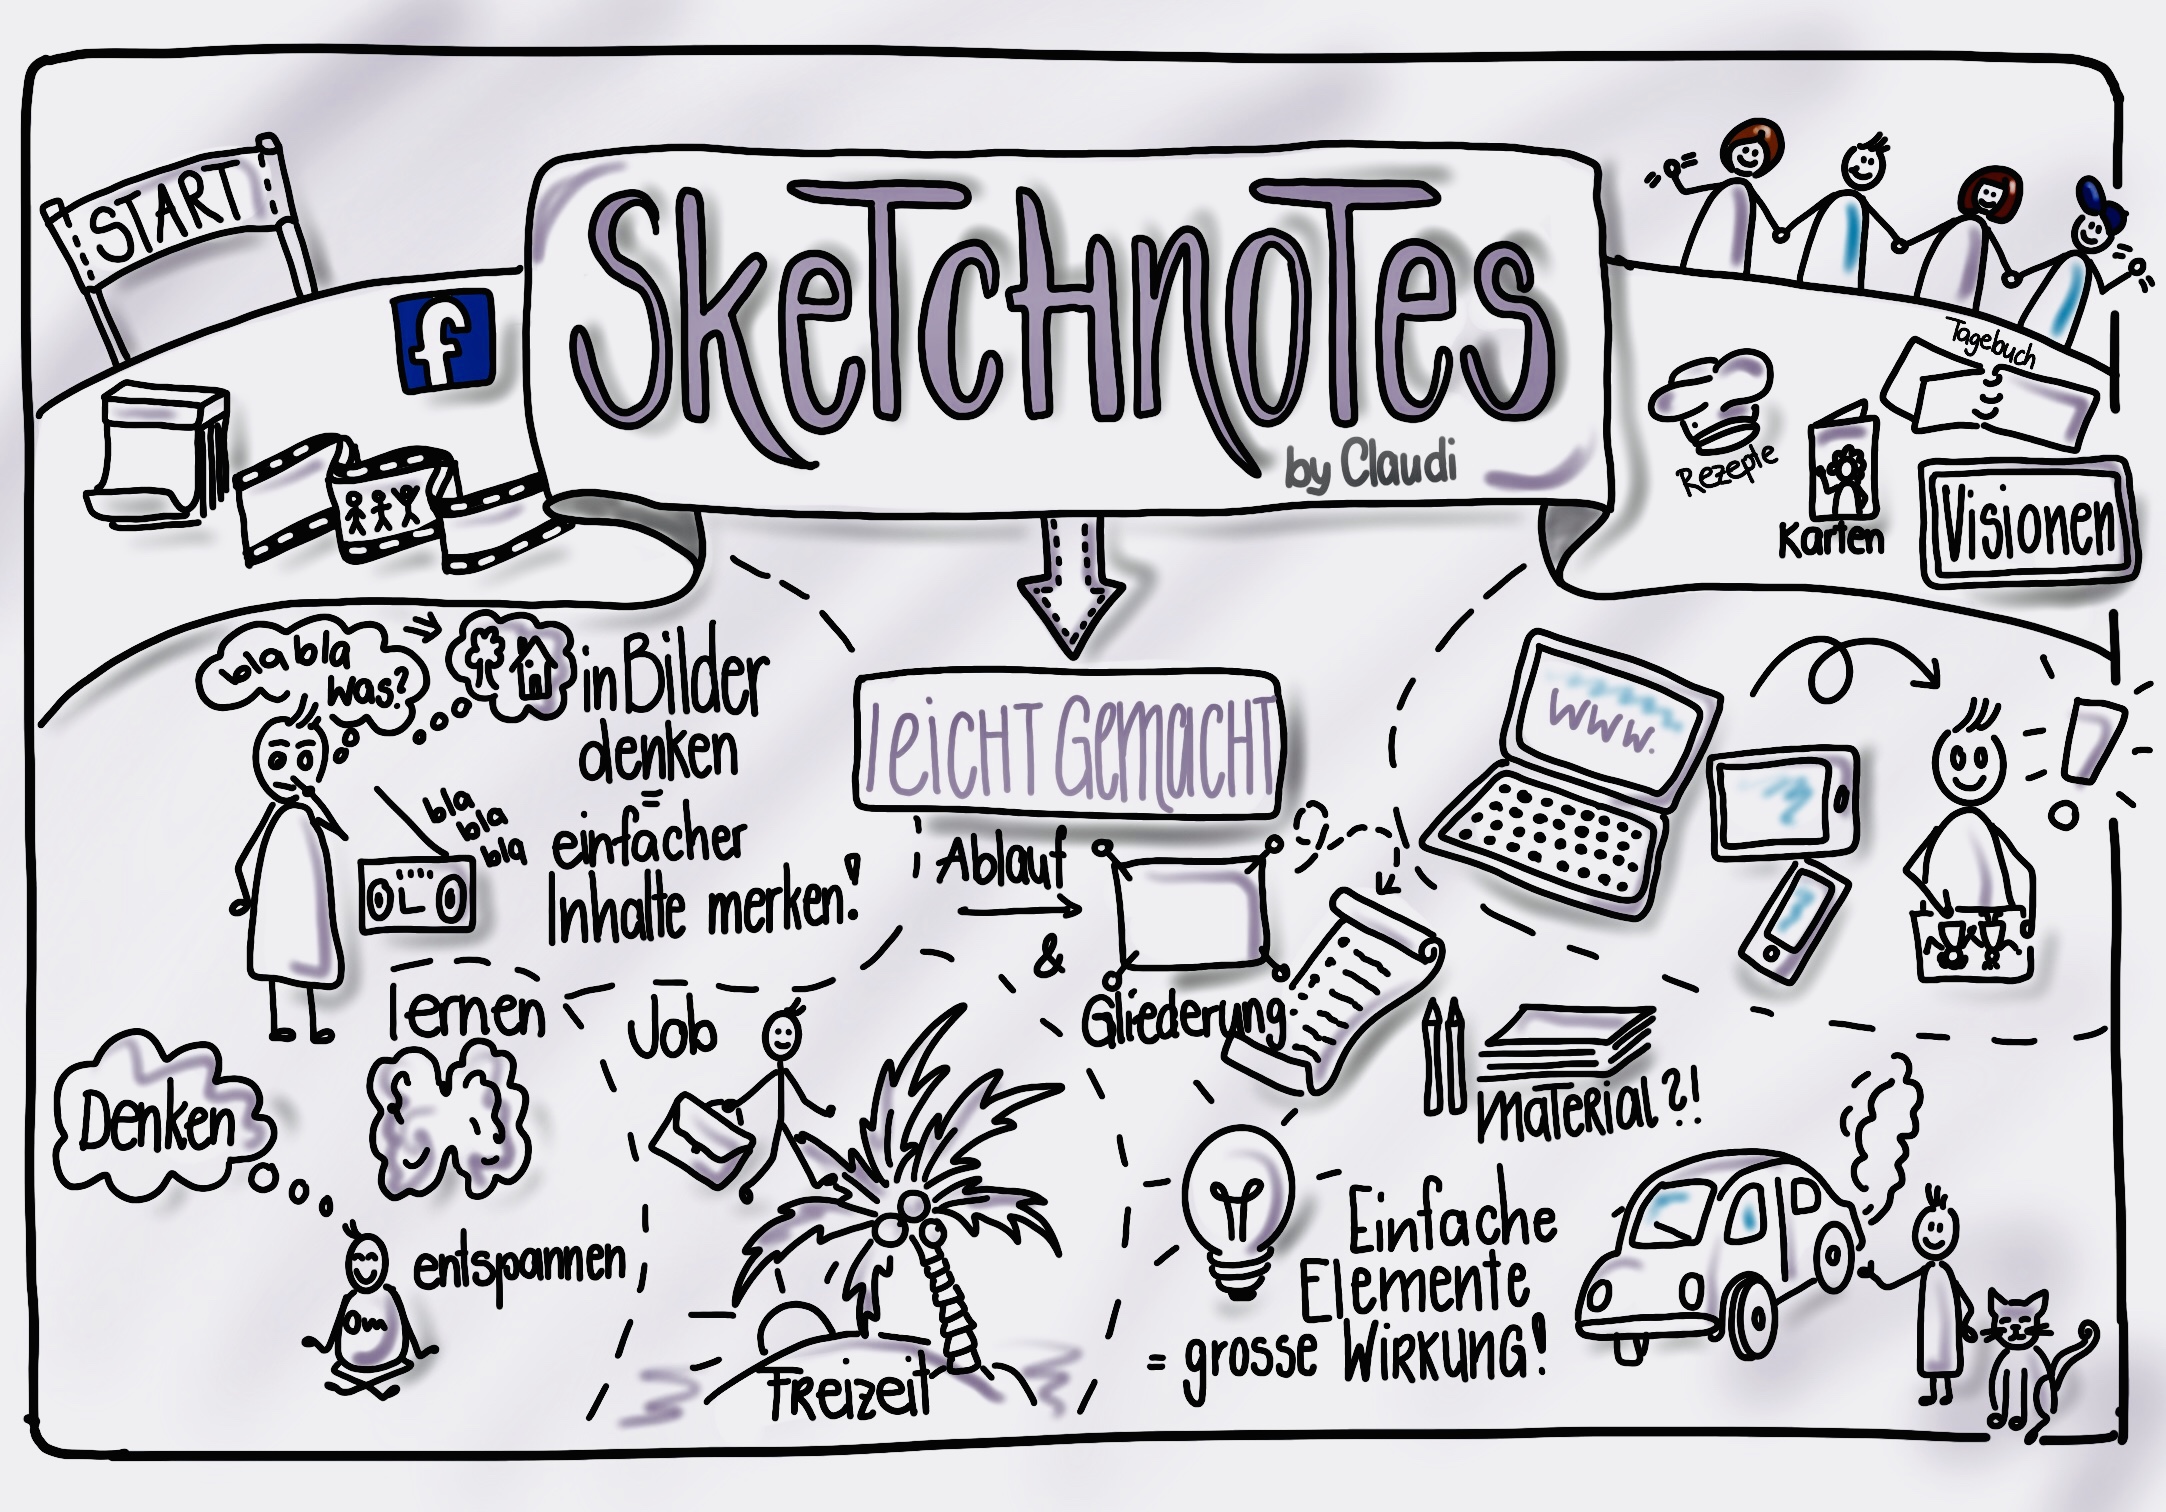 START
f
SkeTcHnoTes
by Claudi
Tagebuch
Rezepte
Karten
Visionen
bla bla
was?
in Bilder
denken
=
einfacher
Inhalte merken!
bla
bla
bla
leicHT GemacHT
Ablauf
&
Gliederung
www.
lernen
Denken
Om
entspannen
Job
FReizeit
MATERIAL?!
Einfache
Elemente
= grosse WIRKUNG!